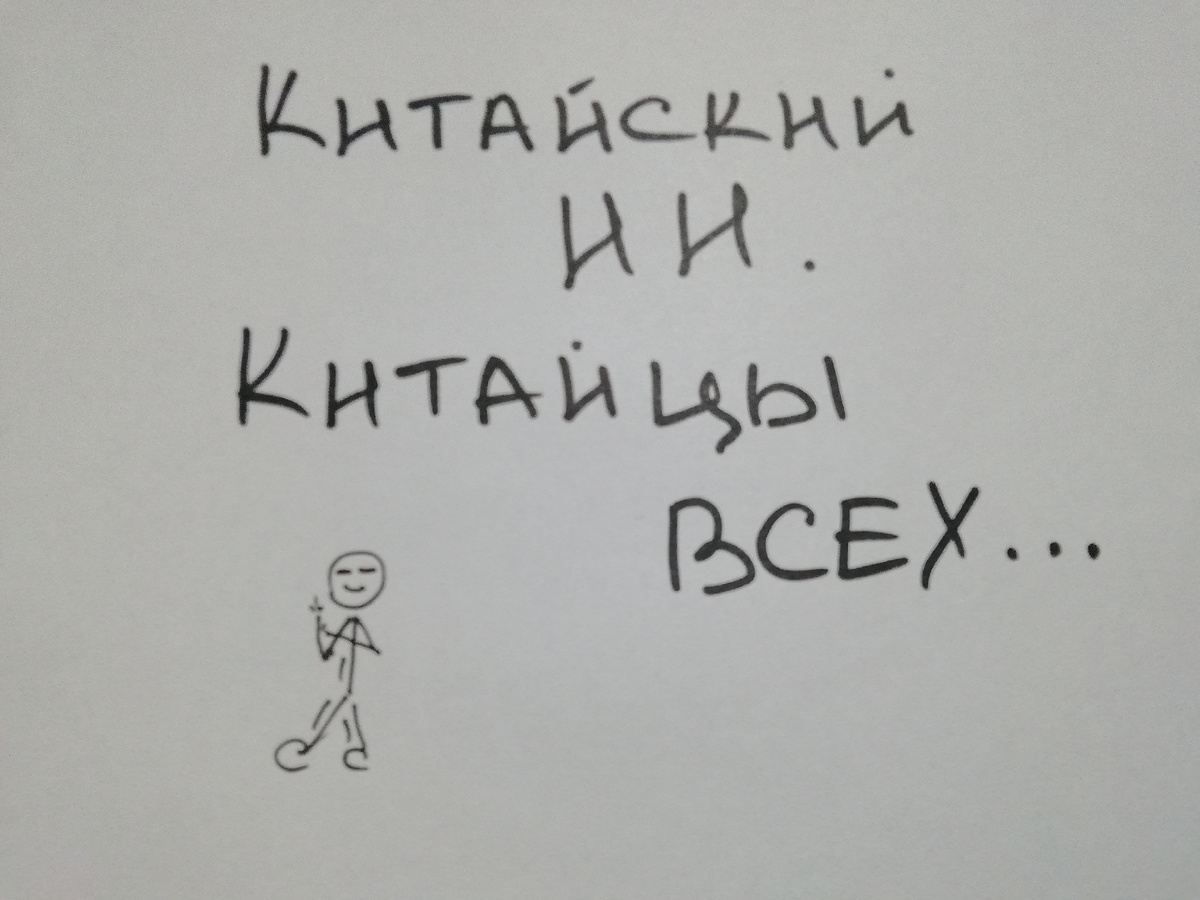 Китайский
ИИ.
Китайцы
всех...